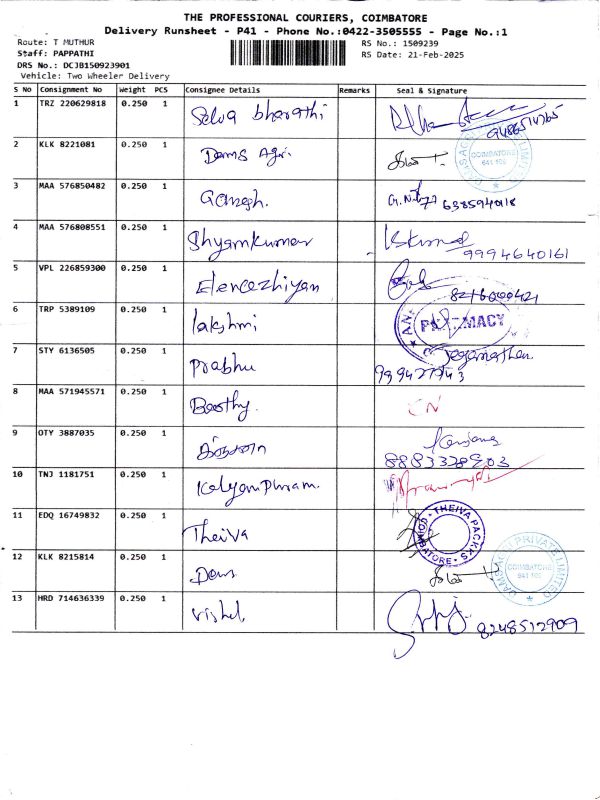 THE PROFESSIONAL COURIERS, COIMBATORE
Delivery Runsheet - P41 - Phone No.:0422-3505555 - Page No.:1
Route: T MUTHUR
RS No.: 1509239
Staff: PAPPATHI
RS Date: 21-Feb-2025
DRS No.: DCJB150923901
Vehicle: Two Wheeler Delivery
S No Consignment No Weight PCS Consignee Details Remarks Seal & Signature
1 TRZ 220629818 0.250 1 Selva bharathi
2 KLK 8221081 0.250 1 Dams Agri. COIMBATORE 641 109
3 MAA 576850482 0.250 1 Ganesh. 6385940118
4 MAA 576808551 0.250 1 Shyamkumar 9994640161
5 VPL 226859300 0.250 1 Elencezhiyan
6 TRP 5389109 0.250 1 lakshmi
7 STY 6136505 0.250 1 Prabhu Jeganathan
8 MAA 571945571 0.250 1
9 OTY 3887035 0.250 1
10 TNJ 1181751 0.250 1
11 EDQ 16749832 0.250 1 Theiva THEIVA PACKKS COIMBATORE
12 KLK 8215814 0.250 1 Dams DAMS AGRI PRIVATE LIMITED COIMBATORE 641 109
13 HRD 714636339 0.250 1 8248512909